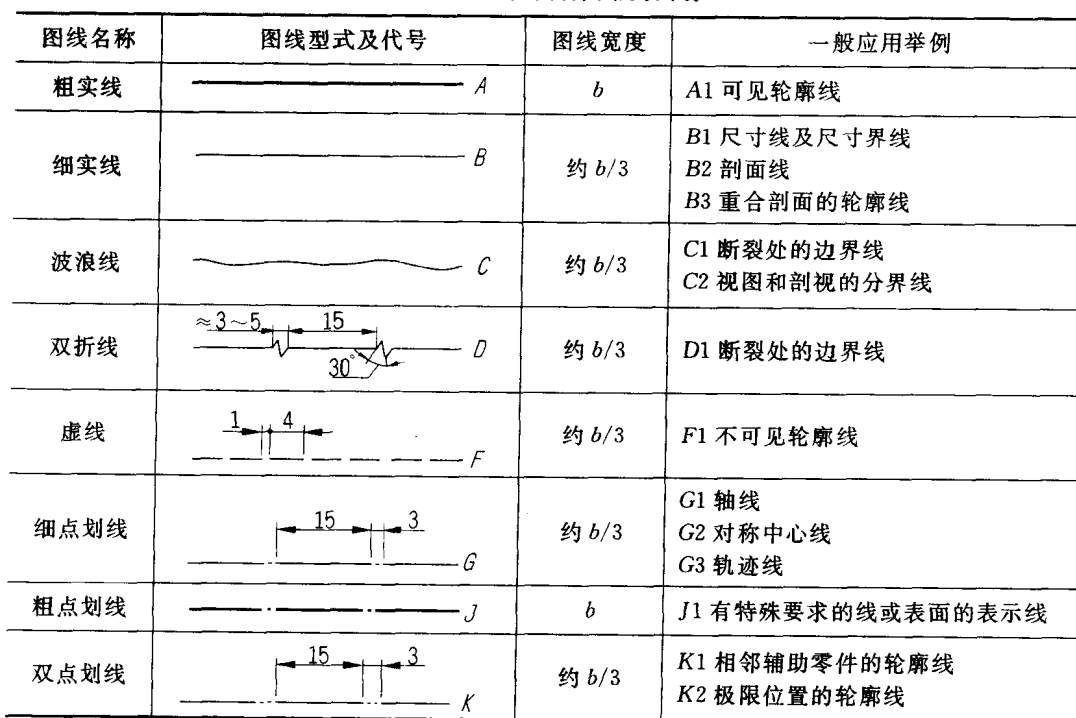 图线名称 图线型式及代号 图线宽度 一般应用举例
粗实线 A b A1 可见轮廓线
细实线 B 约 b/3 B1 尺寸线及尺寸界线
B2 剖面线
B3 重合剖面的轮廓线
波浪线 C 约 b/3 C1 断裂处的边界线
C2 视图和剖视的分界线
双折线 ≈3～5 15 30° D 约 b/3 D1 断裂处的边界线
虚线 1 4 F 约 b/3 F1 不可见轮廓线
细点划线 15 3 G 约 b/3 G1 轴线
G2 对称中心线
G3 轨迹线
粗点划线 J b J1 有特殊要求的线或表面的表示线
双点划线 15 3 K 约 b/3 K1 相邻辅助零件的轮廓线
K2 极限位置的轮廓线